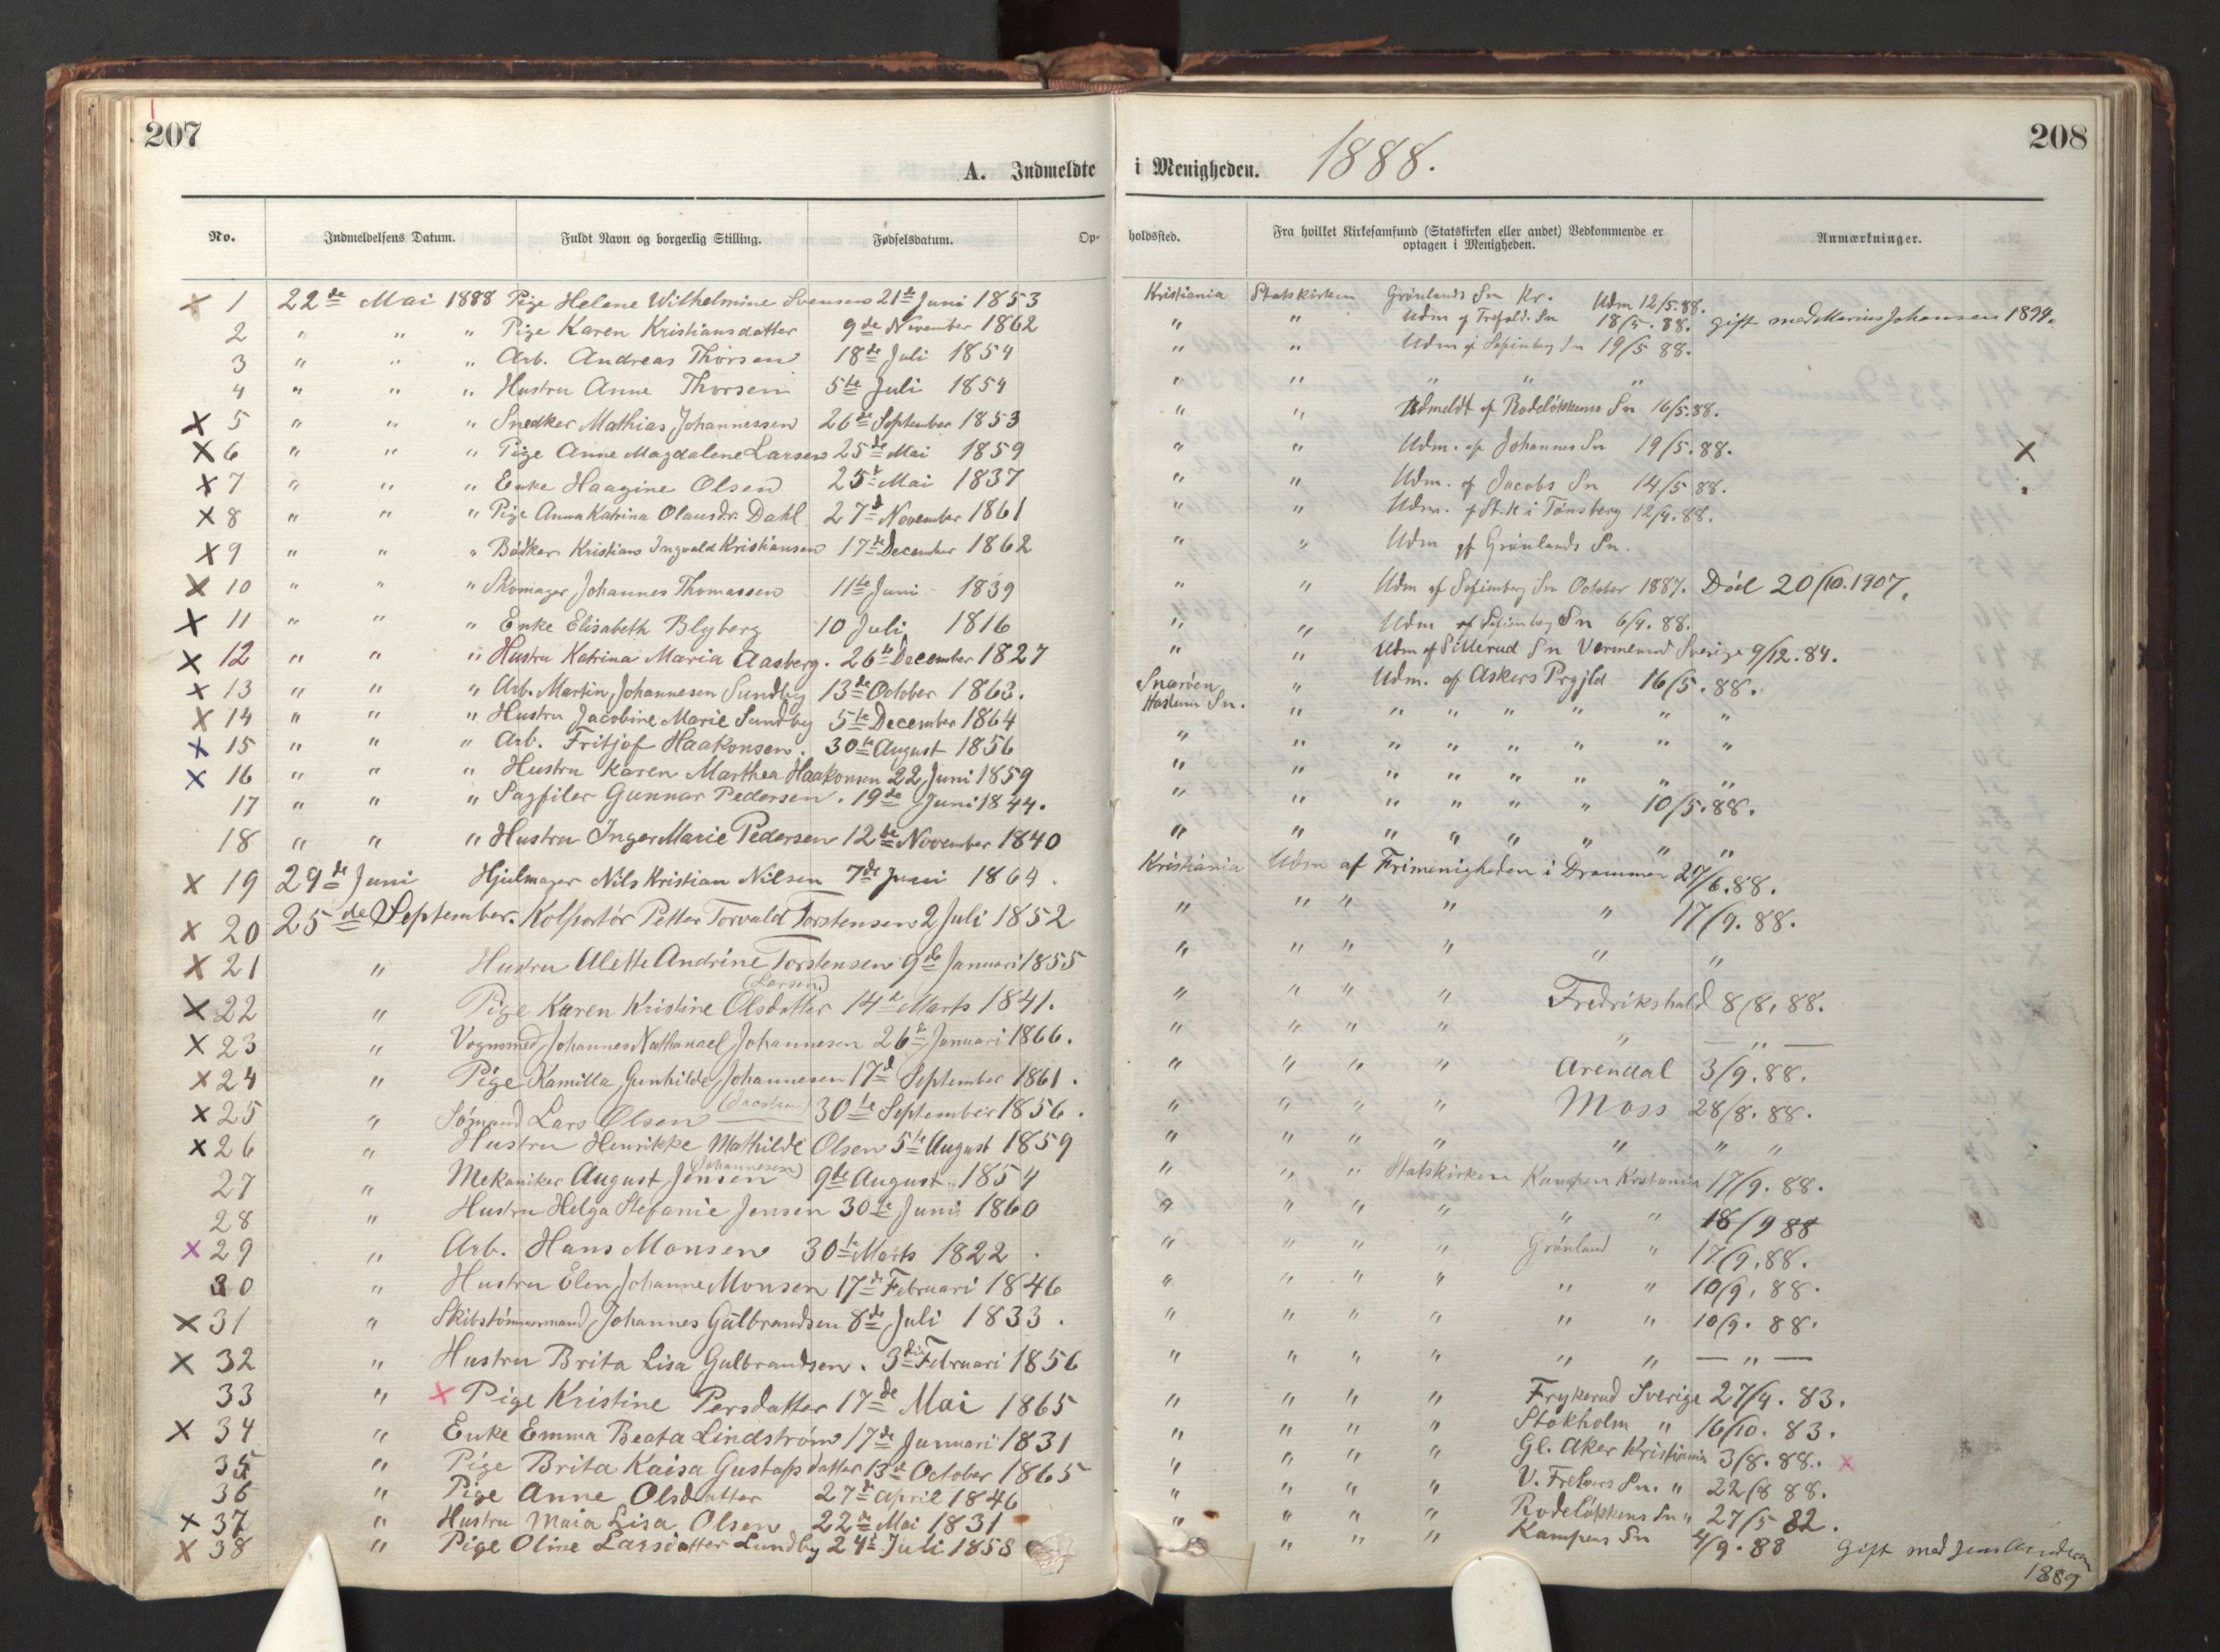 207
208
A. Indmeldte i Menigheden. 1888.
No. Indmeldelsens Datum. Fuldt Navn og borgerlig Stilling. Fødselsdatum. Opholdsted. Fra hvilket Kirkesamfund (Statskirken eller andet) Vedkommende er optagen i Menigheden. Anmærkninger.
× 1 22de Mai 1888 Pige Helene Wilhelmine Svensen 21de Juni 1853 Kristiania Statskirken Grønlands Sn Kr. Udm 12/5.88.
2 " " " Pige Karen Kristiansdatter 9de November 1862 " " Udm af Trefold. Sn 18/5.88. gift med Marius Johansen 1899.
3 " " " Arb. Andreas Thorsen 18de Juli 1854 " " Udm af Sofienberg Sn 19/5 88.
4 " " " Hustru Anne Thorsen 5te Juli 1854 " " " " "
× 5 " " " Snedker Mathias Johannessen 26de September 1853 " " Udmeldt af Rodeløkkens Sn 16/5.88.
× 6 " " " Pige Anne Magdalene Larsen 25de Mai 1859 " " Udm. af Johannes Sn 19/5.88. ×
× 7 " " " Enke Haagine Olsen 25 Mai 1837 " " Udm. af Jacobs Sn 14/5 88.
× 8 " " " Pige Anna Katrina Olausdr. Dahl 27d November 1861 " " Udm. af St.K i Tønsberg 12/4.88.
× 9 " " " Bødker Kristian Ingvald Kristiansen 17de December 1862 " " Udm af Grønlands Sn.
× 10 " " " Skomager Johannes Thomassen 11te Juni 1839 " " Udm af Sofienberg Sn October 1887. Død 20/10.1907.
× 11 " " " Enke Elisabeth Blyberg 10 Juli 1816 " " Udm af Sofienberg Sn 6/4.88.
× 12 " " " Hustru Katrina Maria Aasberg. 26te December 1827 " " Udm af Sillerud Sn Vermland Sverige 9/12.84.
× 13 " " " Arb. Martin Johannesen Sundby 13de October 1863. Snarøen " Udm. af Askers Prgjld 16/5.88.
× 14 " " " Hustru Jacobine Marie Sundby 5te December 1864 Haslum Sn. " " " " " " "
× 15 " " " Arb. Fritjof Haakonsen. 30te August 1856 " " " " " " " "
× 16 " " " Hustru Karen Marthea Haakonsen 22 Juni 1859 " " " " " " " "
17 " " " Sagfiler Gunnar Pedersen. 19de Juni 1844. " " " " " " 10/5.88.
18 " " " Hustru Inger Marie Pedersen 12te November 1840 " " " " " " " "
× 19 29de Juni Hjulmager Nils Kristian Nilsen 7de Juni 1864. Kristiania Udm af Frimenigheden i Drammen 27/6.88.
× 20 25de September. Kolportør Petter Torvald Torstensen 2 Juli 1852 " " " " " 17/9.88.
× 21 " Hustru Alette Andrine Torstensen 9de Januari 1855 " " " " " "
× 22 " Pige Karen Kristine Olsdatter (Larsen) 14de Marts 1841. " " " " Fredrikshald 8/8.88.
× 23 " Vognsmed Johannes Nathanael Johannesen 26de Januari 1866. " " " " " — " —
× 24 " Pige Kamilla Gunhilde Johannesen 17d September 1861. " " " " Arendal 3/9.88.
× 25 " Sømand Lars Olsen (Jacobsen) 30te September 1856. " " " " Moss 28/8.88.
× 26 " Hustru Henrikke Mathilde Olsen 5te August 1859 " " " " " " "
27 " Mekaniker August Jensen (Johannesen) 9de August 1854 " " " Statskirken Kampen Kristiania 17/9.88.
28 " Hustru Helga Stefanie Jensen 30te Juni 1860 " " " " " " 18/9 88
× 29 " Arb. Hans Monsen 30te Marts 1822. " " " " Grønland " 17/9.88.
30 " Hustru Elen Johanne Monsen 17de Februari 1846 " " " " " " 10/9.88.
× 31 " Skibstømmermand Johannes Gulbrandsen 8de Juli 1833. " " " " " " 10/9.88.
× 32 " Hustru Brita Lisa Gulbrandsen. 3die Februari 1856 " " " " " " — " —
33 " × Pige Kristine Persdatter 17de Mai 1865 " " " " Frykerud Sverige 27/4.83.
× 34 " Enke Emma Beata Lindstrøm 17de Januari 1831 " " " " Stokholm " 16/10.83.
35 " Pige Brita Kaisa Gustafsdatter 13de October 1865 " " " " Gl. Aker Kristiania 3/8.88. ×
36 " Pige Anne Olsdatter 27de April 1846 " " " " V. Frelsers Sn. " 22/8 88.
× 37 " Hustru Maia Lisa Olsen 22de Mai 1831 " " " " Rodeløkkens Sn " 27/5 82.
× 38 " Pige Oline Larsdatter Lundby 24de Juli 1858 " " " Kampens Sn 4/9.88 Gift med Jens 1889